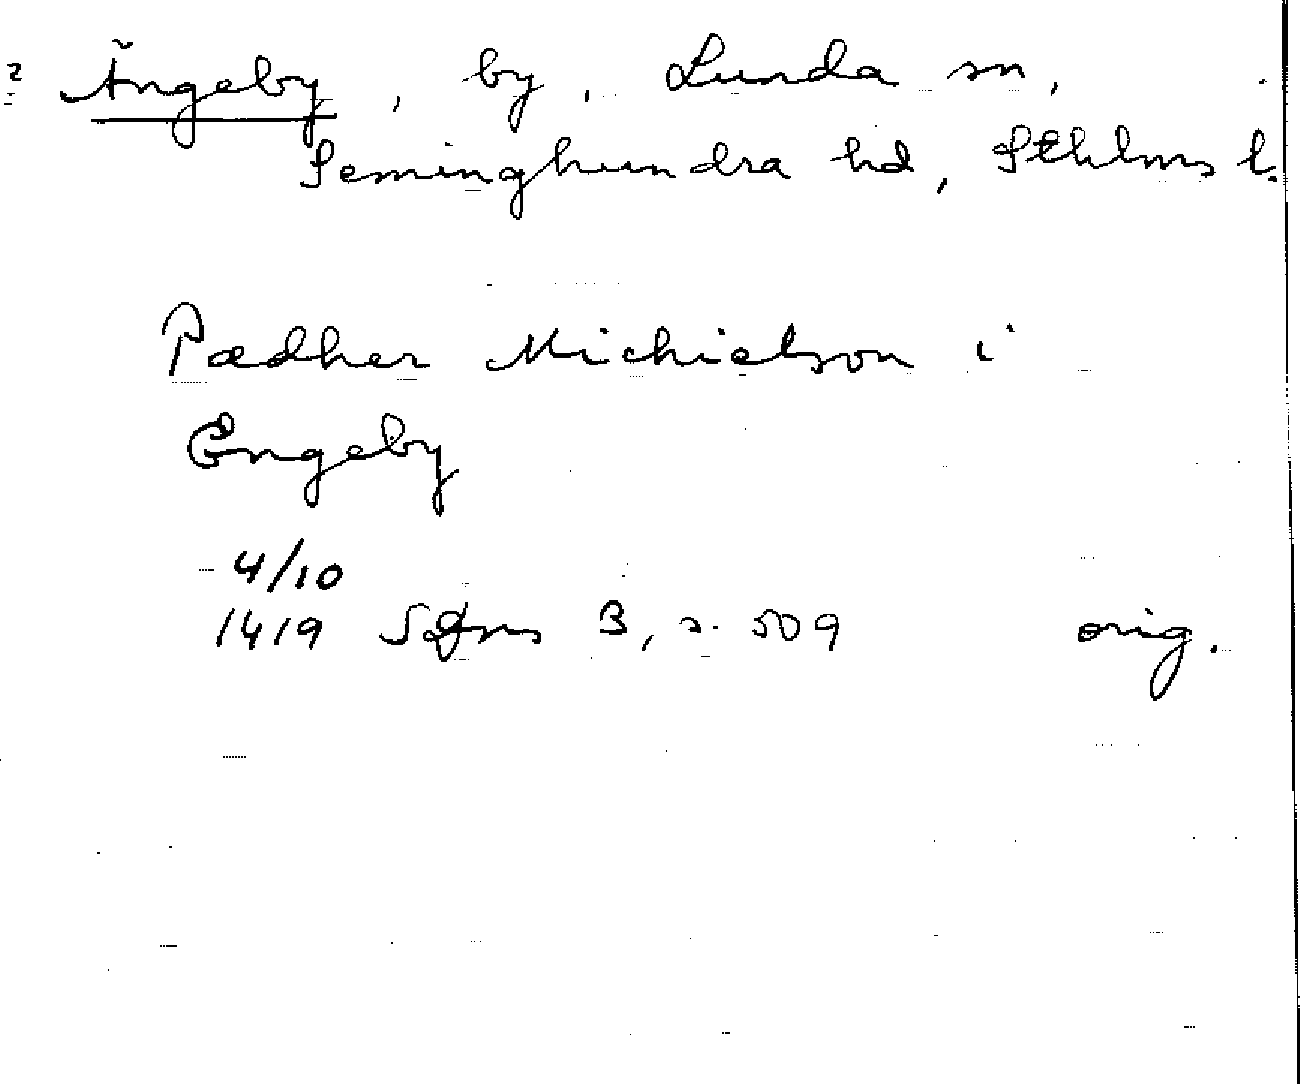 2 Ängeby, by, Lunda sn,
Seminghundra hd, Sthlms l.
Pædher Michielson i
Engeby
4/10
1419 SDns 3, s. 509 orig.